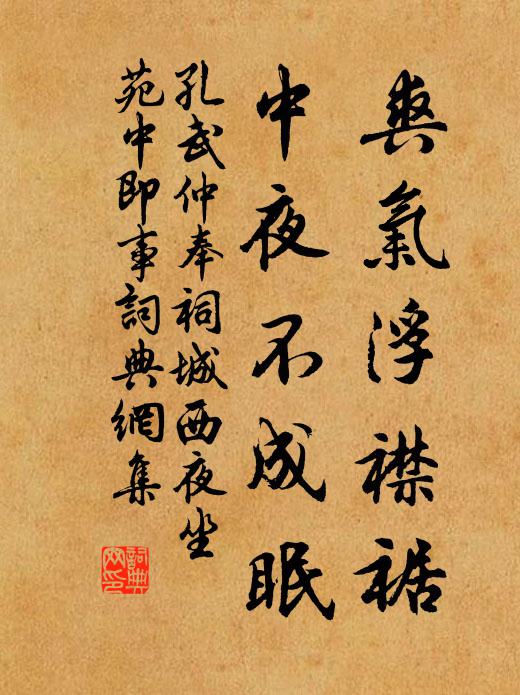 爽氣浮襟裾
中夜不成眠
孔武仲奉祠城西夜坐
苑中即事詞典網集
詞典網印